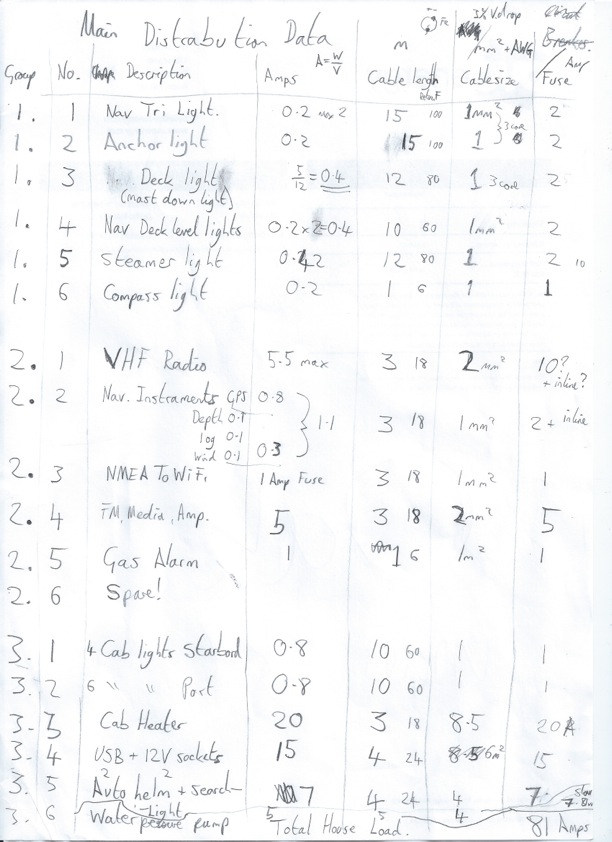 Main Distrabution Data
A=W/V
Group No. Description Amps m Cable length Fe 3% V.drop mm² + AWG Cable size Amp Fuse
1. 1 Nav Tri Light. 0.2 max 2 15 100 1mm² 2
3 core
1. 2 Anchor light 0.2 15 100 1 2
1. 3 Deck light 5/12 = 0.4 12 80 1 3 core 2
(mast down light)
1. 4 Nav Deck level lights 0.2 x 2=0.4 10 60 1mm² 2
1. 5 Steamer light 12 80 1 2 10
1. 6 Compass light 0.2 1 6 1 1
2. 1 VHF Radio 5.5 max 3 18 2mm² 10?
+ inline?
2. 2 Nav. Instraments GPS 0.8
Depth 0.1 1.1 3 18 1mm² 2 + inline
log 0.1
Wind 0.1 0.3
2. 3 NMEA To WiFi 1 Amp Fuse 3 18 1mm² 1
2. 4 FM, Media, Amp. 5 3 18 2mm² 5
2. 5 Gas Alarm 1 1 6 1m² 1
2. 6 Spare!
3. 1 4 Cab lights Starbord 0.8 10 60 1 1
3. 2 6 " " Port 0.8 10 60 1 1
3. 3 Cab Heater 20 3 18 8.5 20A
3. 4 USB + 12V sockets 15 4 24 6m² 15
3. 5 Auto helm 2 + search- 7 4 24 4 7. slow
Light
3. 6 Water pump 5 5 4
Total House Load. 81 Amps